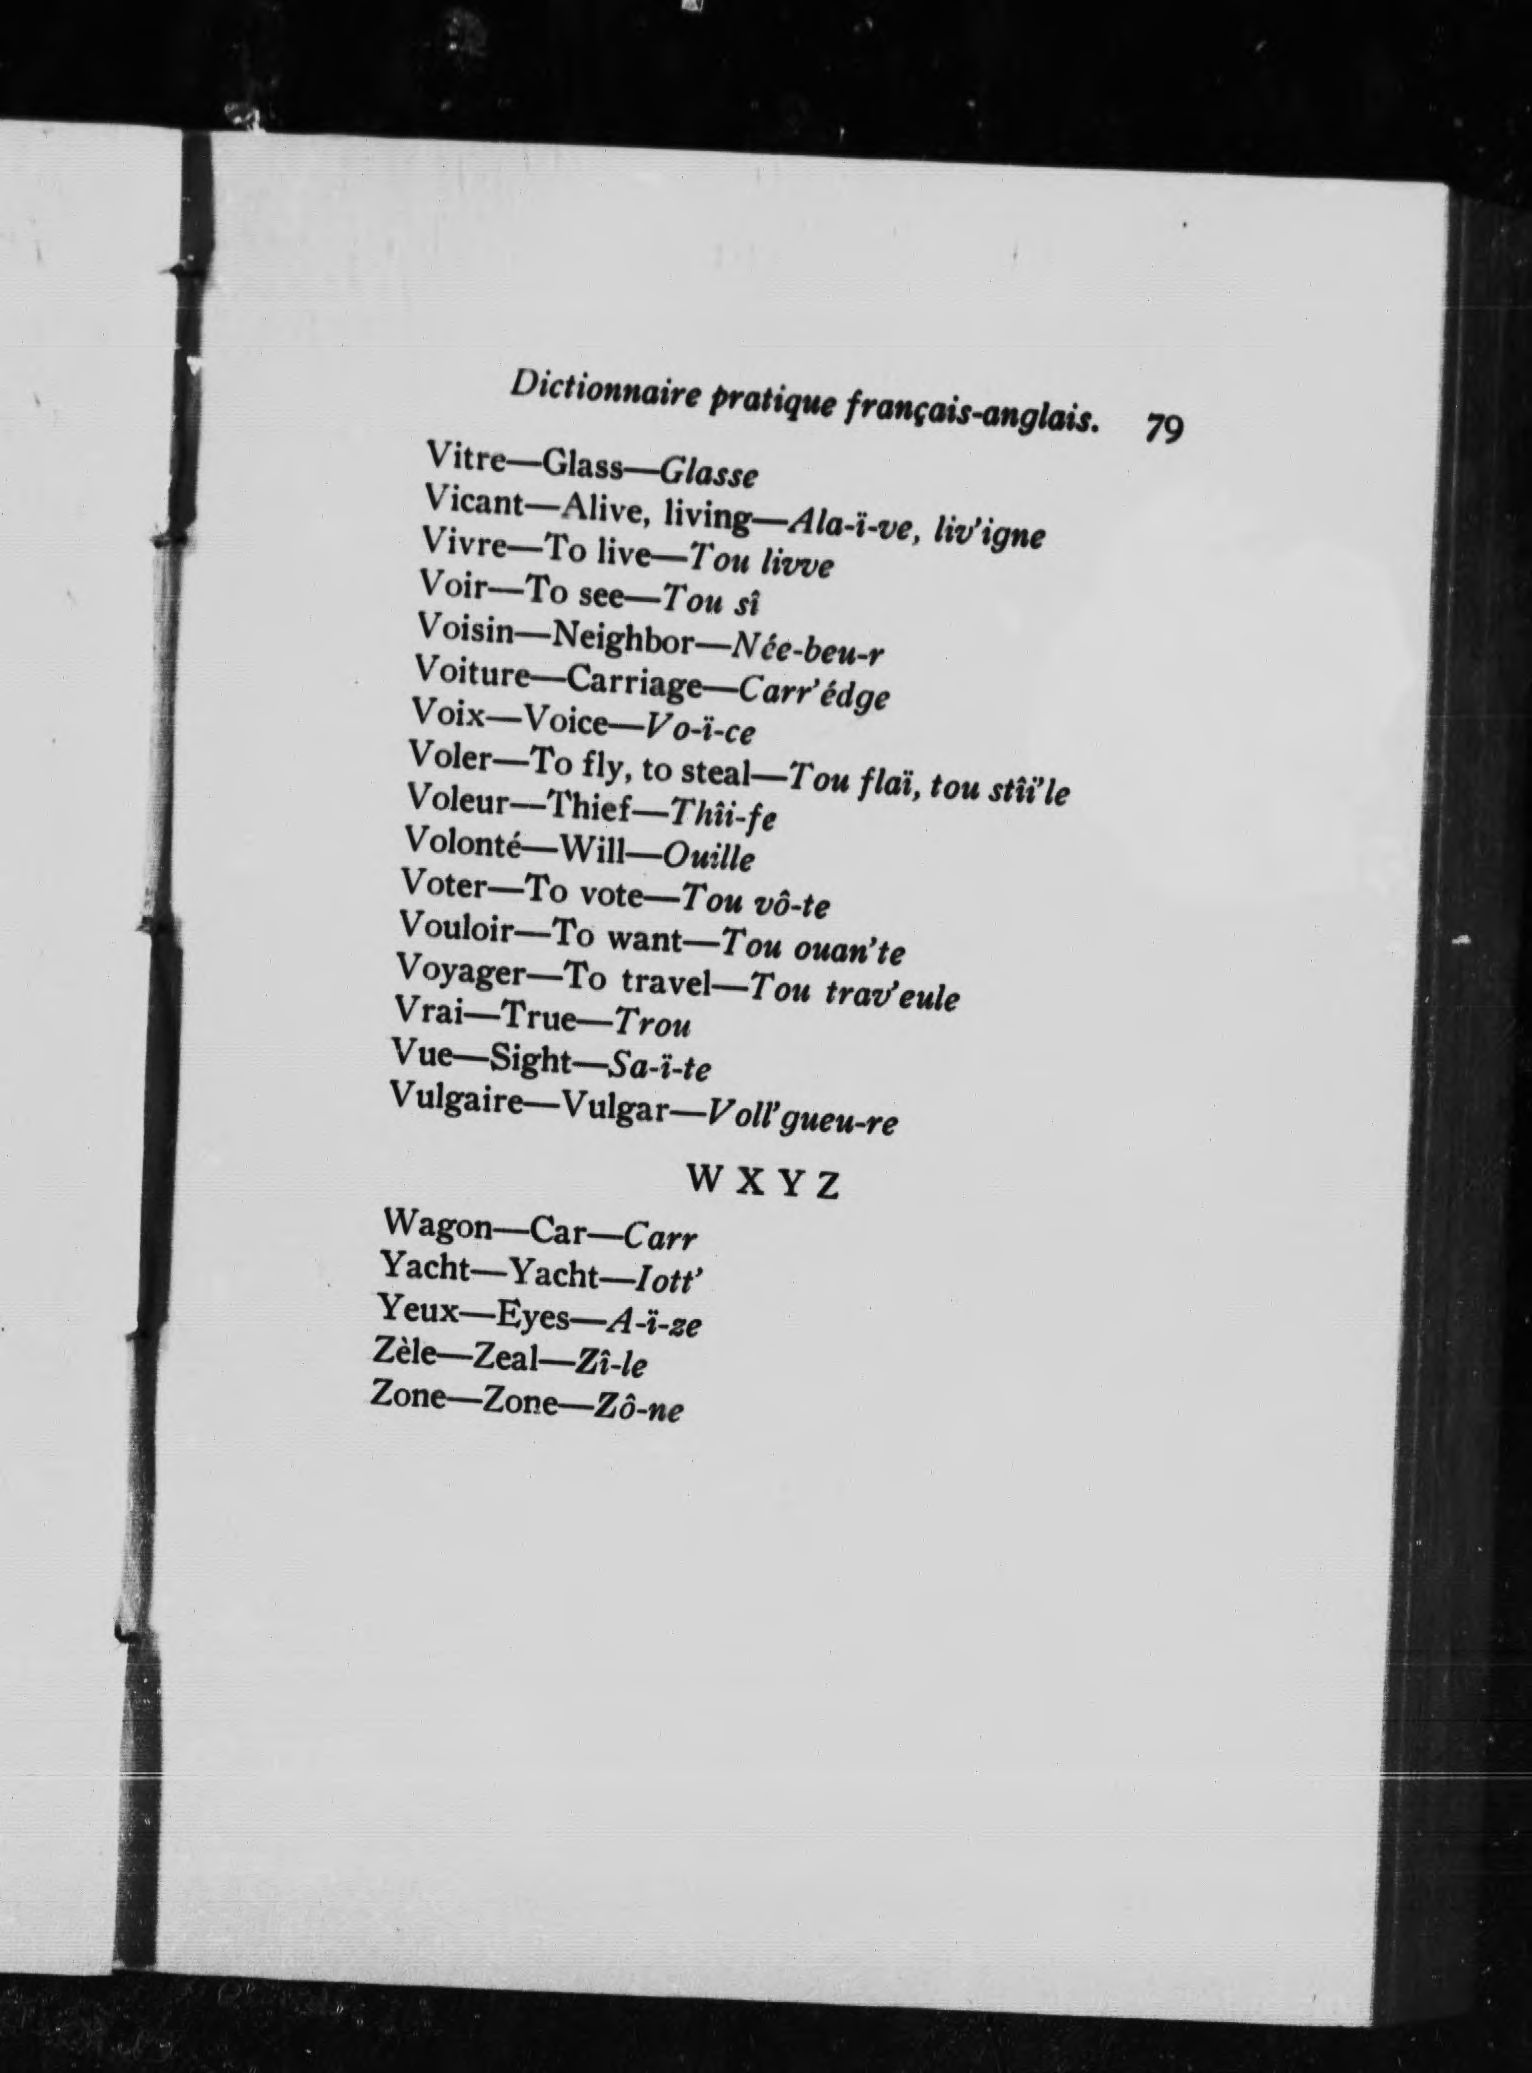 Dictionnaire pratique français-anglais. 79
Vitre—Glass—Glasse
Vicant—Alive, living—Ala-ï-ve, liv'igne
Vivre—To live—Tou livve
Voir—To see—Tou sî
Voisin—Neighbor—Née-beu-r
Voiture—Carriage—Carr'édge
Voix—Voice—Vo-ï-ce
Voler—To fly, to steal—Tou flaï, tou stîï'le
Voleur—Thief—Thîi-fe
Volonté—Will—Ouille
Voter—To vote—Tou vô-te
Vouloir—To want—Tou ouan'te
Voyager—To travel—Tou trav'eule
Vrai—True—Trou
Vue—Sight—Sa-ï-te
Vulgaire—Vulgar—Voll'gueu-re
W X Y Z
Wagon—Car—Carr
Yacht—Yacht—Iott'
Yeux—Eyes—A-ï-ze
Zèle—Zeal—Zî-le
Zone—Zone—Zô-ne